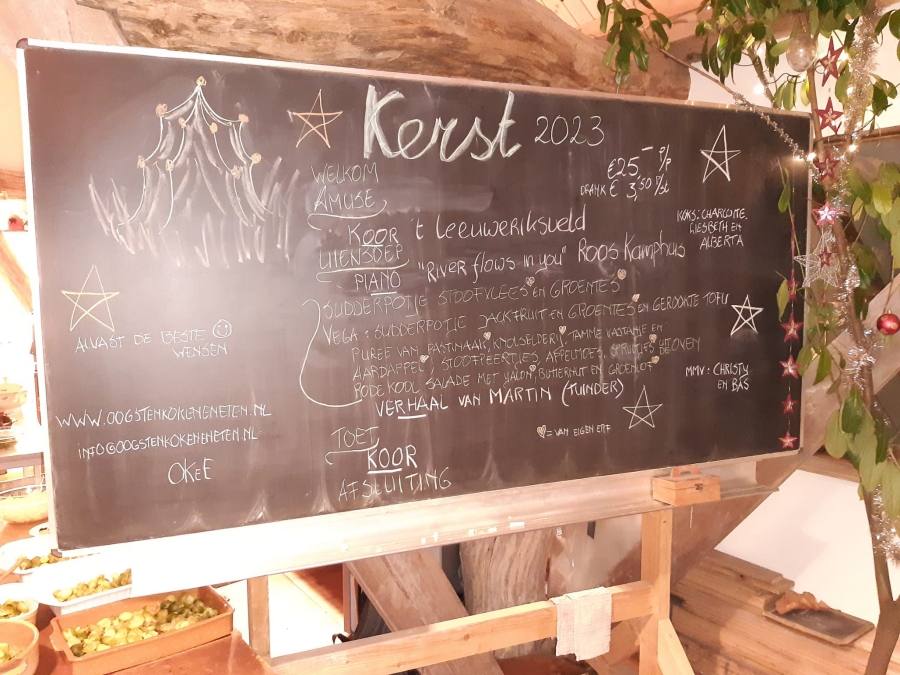 Kerst 2023
WELKOM
AMUSE
€25,- P/P
DRANK € 3,50 P/ST
KOOR 't Leeuweriksveld
UIENSOEP
PIANO "River flows in you" Roos Kamphuis
SUDDERPOTJE STOOFVLEES EN GROENTES
VEGA: SUDDERPOTJE JACKFRUIT EN GROENTES EN GEROOKTE TOFU
PUREE VAN PASTINAAK, KNOLSELDERIJ, TAMME KASTANJE EN
AARDAPPEL, STOOFPEERTJES, APPELMOES, SPRUITJES UIT DE OVEN
RODE KOOL SALADE MET
VERHAAL VAN MARTIN (TUINDER)
♡= VAN EIGEN ERF
TOET
KOOR
AFSLUITING
KOKS: CHARLOTTE,
LIESBETH EN
ALBERTA
MMV: CHRISTY
EN BAS
ALVAST DE BESTE
WENSEN
WWW.OOGSTENKOKENENETEN.NL
INFO@OOGSTENKOKENENETEN.NL
OKeE